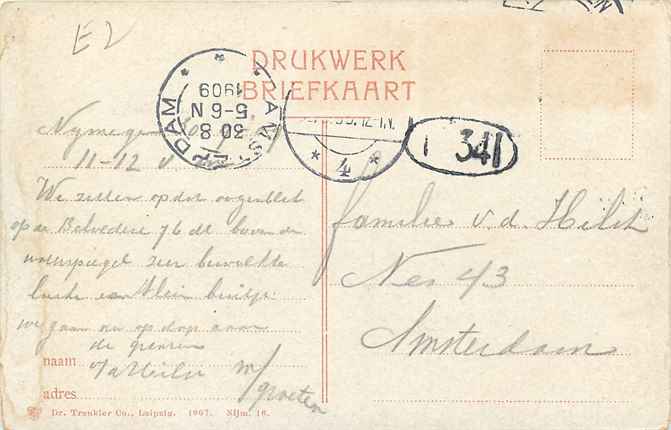 E2
DRUKWERK
BRIEFKAART
AMSTERDAM
30 8
5-6 N
1909
4
1 341
Nymegen
11-12 v
We zitten op dit oogenblik
op de Belvedere 76 M boven den
waterspiegel zeer bewolkte
lucht een klein buitje
we gaan nu op dorp aan
de grenzen
m/
groeten
naam
adres
familie v. d. Hilst
Nes 43
Amsterdam
Dr. Trenkler Co., Leipzig. 1907. Nijm. 16.